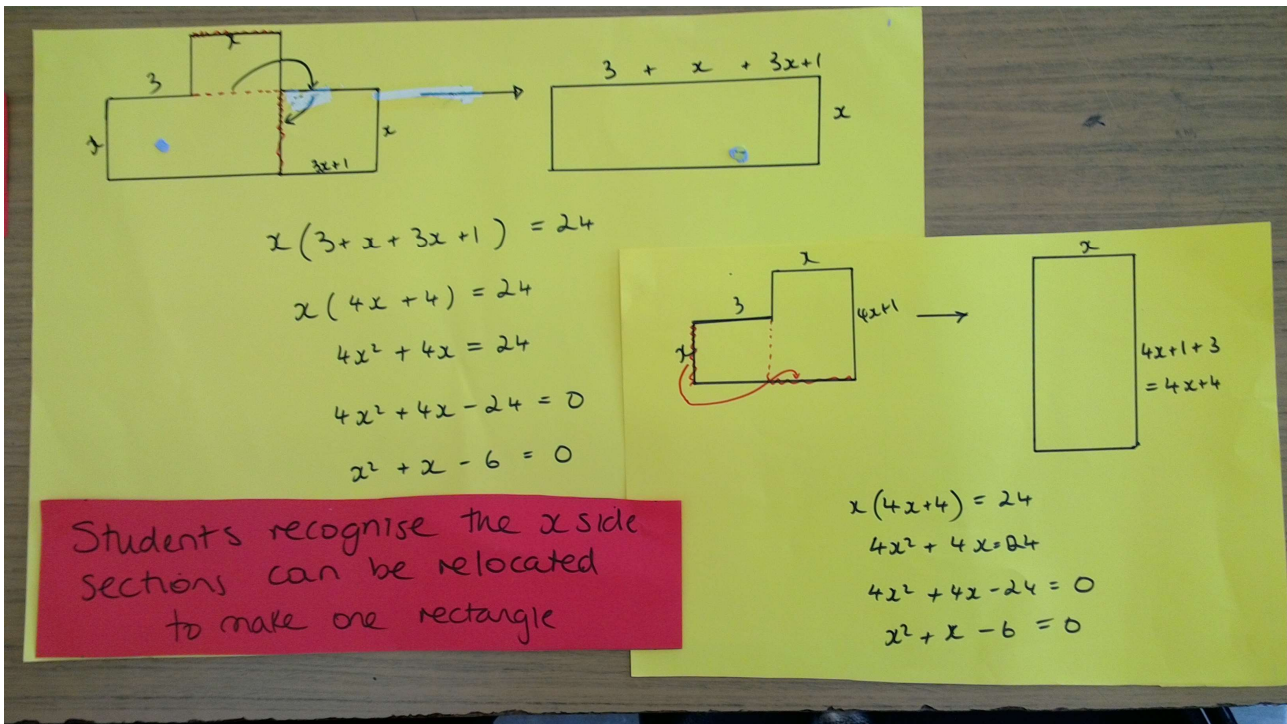 x
3
x
x
3x+1
3 + x + 3x+1
x
x(3+x+3x+1) = 24
x(4x+4) = 24
4x² + 4x = 24
4x² + 4x - 24 = 0
x² + x - 6 = 0
Students recognise the x side
sections can be relocated
to make one rectangle
x
3
x
4x+1
x
4x+1+3
= 4x+4
x(4x+4) = 24
4x² + 4x = 24
4x² + 4x - 24 = 0
x² + x - 6 = 0